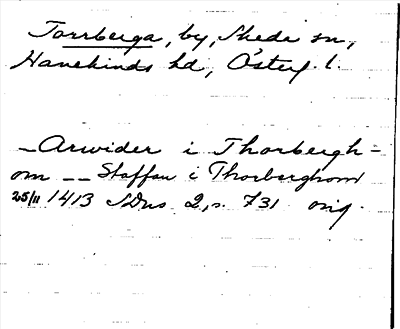 Torrberga, by, Skede sn,
Hanekinds hd, Österg. l.
_Arwider i Thorbergh-
om _ _ Staffan i Thorberghom
25/11 1413 SDns 2, s. 731 orig.